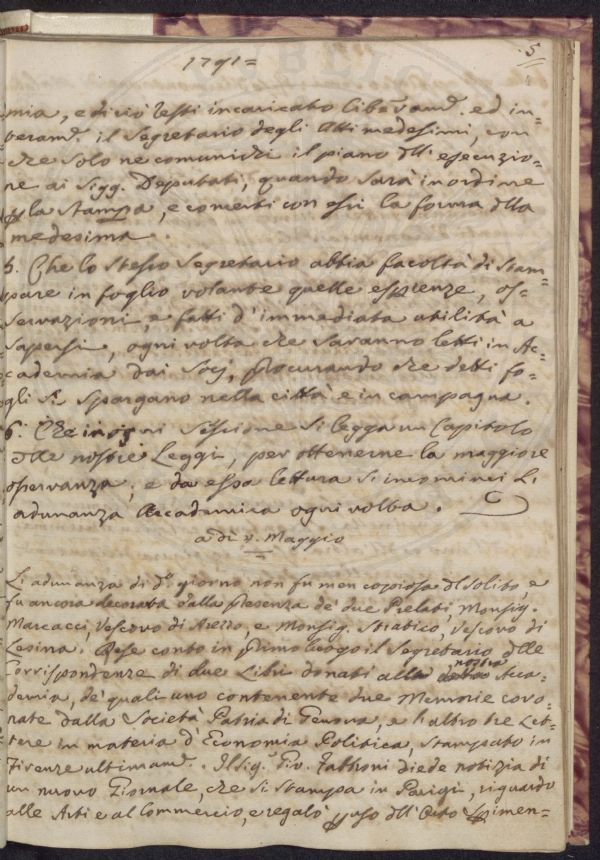 5
1791=
mia, e di ciò resti incaricato liberamd. ed in=
teramd. il Segretario degli Atti medesimi, con
che solo ne comunichi il piano dll' esecuzio=
ne ai Sigg. Deputati, quando sarà in ordine
p la stampa, e concerti con essi la forma dlla
medesima.
5. Che lo stesso Segretario abbia facoltà di stam=
pare in foglio volante quelle esprienze, os=
servazioni, e fatti d'immediata utilità a
sapersi, ogni volta che saranno letti in Ac=
cademia dai Socj, procurando che detti fo=
gli si spargano nella città e in campagna.
6. Che in ogni Sessione si legga un Capitolo
dlle nostre Leggi, per ottenerne la maggiore
osservanza, e da essa lettura si incominci L'
adunanza Accademica ogni volta.
a dì Maggio
L'adunanza di do giorno non fu men copiosa dl solito, e
fu ancora decorata dalla presenza de' due Prelati, Monsig.
Marcacci, Vescovo di Arezzo, e Monsig. Stratico, Vescovo di
Lesina. Rese conto in primo luogo il Segretario dlle
Corrispondenze di due Libri donati alla nostra Acca=
demia, de' quali uno contenente due Memorie coro=
nate dalla Società Patria di Genova, e l'altro tre Let=
tere in materia d'Economia Politica, stampato in
Firenze ultimamd. Il Sigr. Gio. Fabbroni diede notizia di
un nuovo Giornale, che si stampa in Parigi, riguardo
alle Arti e al Commercio, e regalò p uso dll' Orto Sprimen=